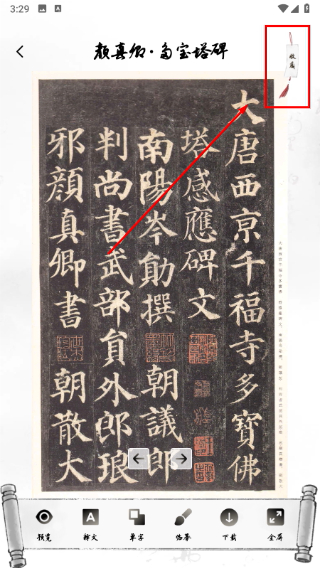 3:29
颜真卿·多宝塔碑
收廌
大唐西京千福寺多寶佛
塔感應碑文
南陽岑勛撰 朝議郎
判尚書武部員外郎琅
邪顏真卿書 朝散大
预览
释文
单字
临摹
下载
全屏